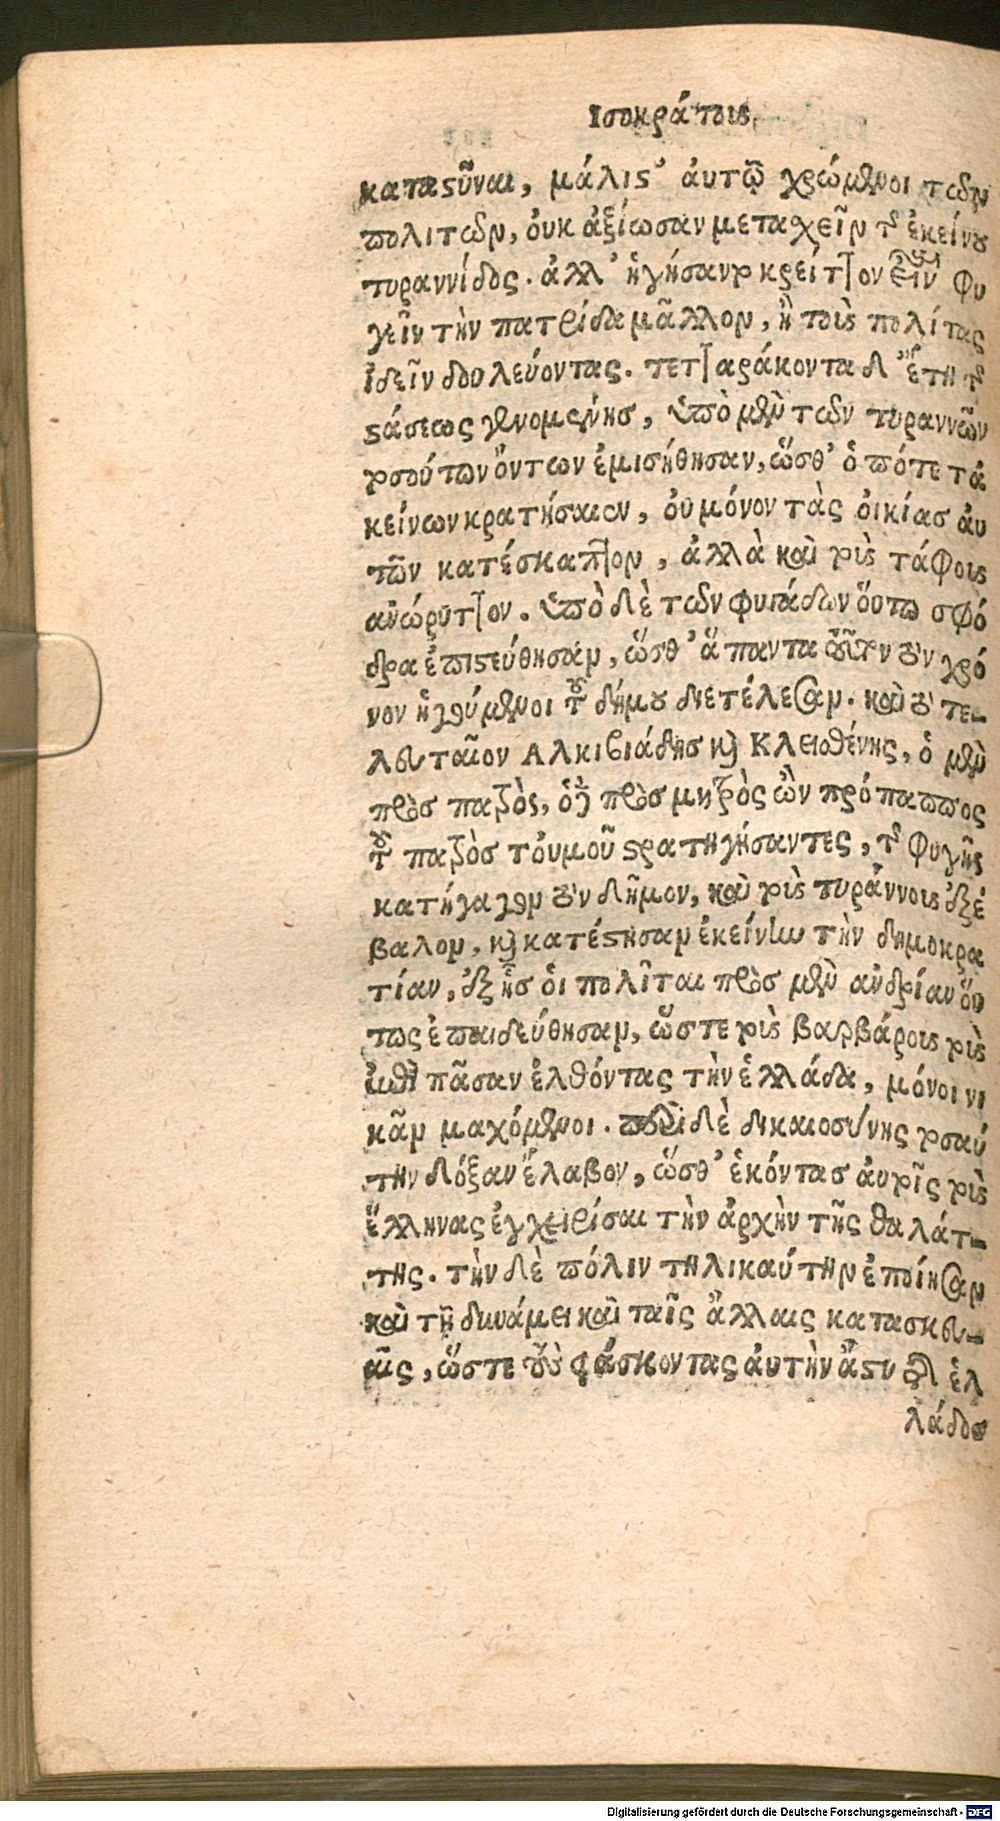 Ισοκράτους
καταστῆναι, μάλιστ' ἀυτῷ χρώμενοι τῶν
πολιτῶν, ὀυκ ἀξίωσαν μετασχεῖν τῆς ἐκείνου
τυραννίδος. ἀλλ' ἡγήσαντο κρεῖττον εἶναι φυ
γεῖν τὴν πατρίδα μᾶλλον, ἢ τοὺς πολίτας
ἰδεῖν δουλεύοντας. τετταράκοντα δ' ἔτη τῆς
στάσεως γενομένης, ὑπὸ μὲν τῶν τυραννῶν
τοσούτων ὄντων ἐμισήθησαν, ὥσθ' ὁπότε τἀ
κείνων κρατήσαιεν, ὀυ μόνον τὰς ὀικίας ἀυ
τῶν κατέσκαπτον, ἀλλὰ καὶ τοὺς τάφους
ἀνώρυττον. ὑπὸ δὲ τῶν φυγάδων ὅυτω σφό
δρα ἐπιστεύθησαν, ὥσθ' ἅπαντα τοῦτον τὸν χρό
νον ἡγούμενοι τοῦ δήμου διετέλεσαν. καὶ τὸ τε-
λευταῖον Αλκιβιάδης καὶ Κλεισθένης, ὁ μὲν
πρὸς πατρὸς, ὁ δὲ πρὸς μητρὸς ὢν πρόπαππος
τοῦ πατρὸς τὀυμοῦ στρατηγήσαντες, τῆς φυγῆς
κατήγαγον τὸν δῆμον, καὶ τοὺς τυράννους ἐξέ
βαλον, καὶ κατέστησαν ἐκείνην τὴν δημοκρα
τίαν, ἐξ ἧς ὁι πολῖται πρὸς μὲν ἀνδρίαν ὅυ
τως ἐπαιδεύθησαν, ὥστε τοὺς βαρβάρους τοὺς
ἐπὶ πᾶσαν ἐλθόντας τὴν ἑλλάδα, μόνοι νι
κᾶν μαχόμενοι. περὶ δὲ δικαιοσύνης τοσαύ
την δόξαν ἔλαβον, ὥσθ' ἑκόντας ἀυτοῖς τοὺς
ἕλληνας ἐγχειρίσαι τὴν ἀρχὴν τῆς θαλάτ-
της. τὴν δὲ πόλιν τηλικαύτην ἐποίησαν
καὶ τῇ δυνάμει καὶ ταῖς ἄλλαις κατασκευ-
αῖς, ὥστε τοὺς φάσκοντας ἀυτὴν ἄστυ τῆς ἑλ
λάδος
Digitalisierung gefördert durch die Deutsche Forschungsgemeinschaft - DFG